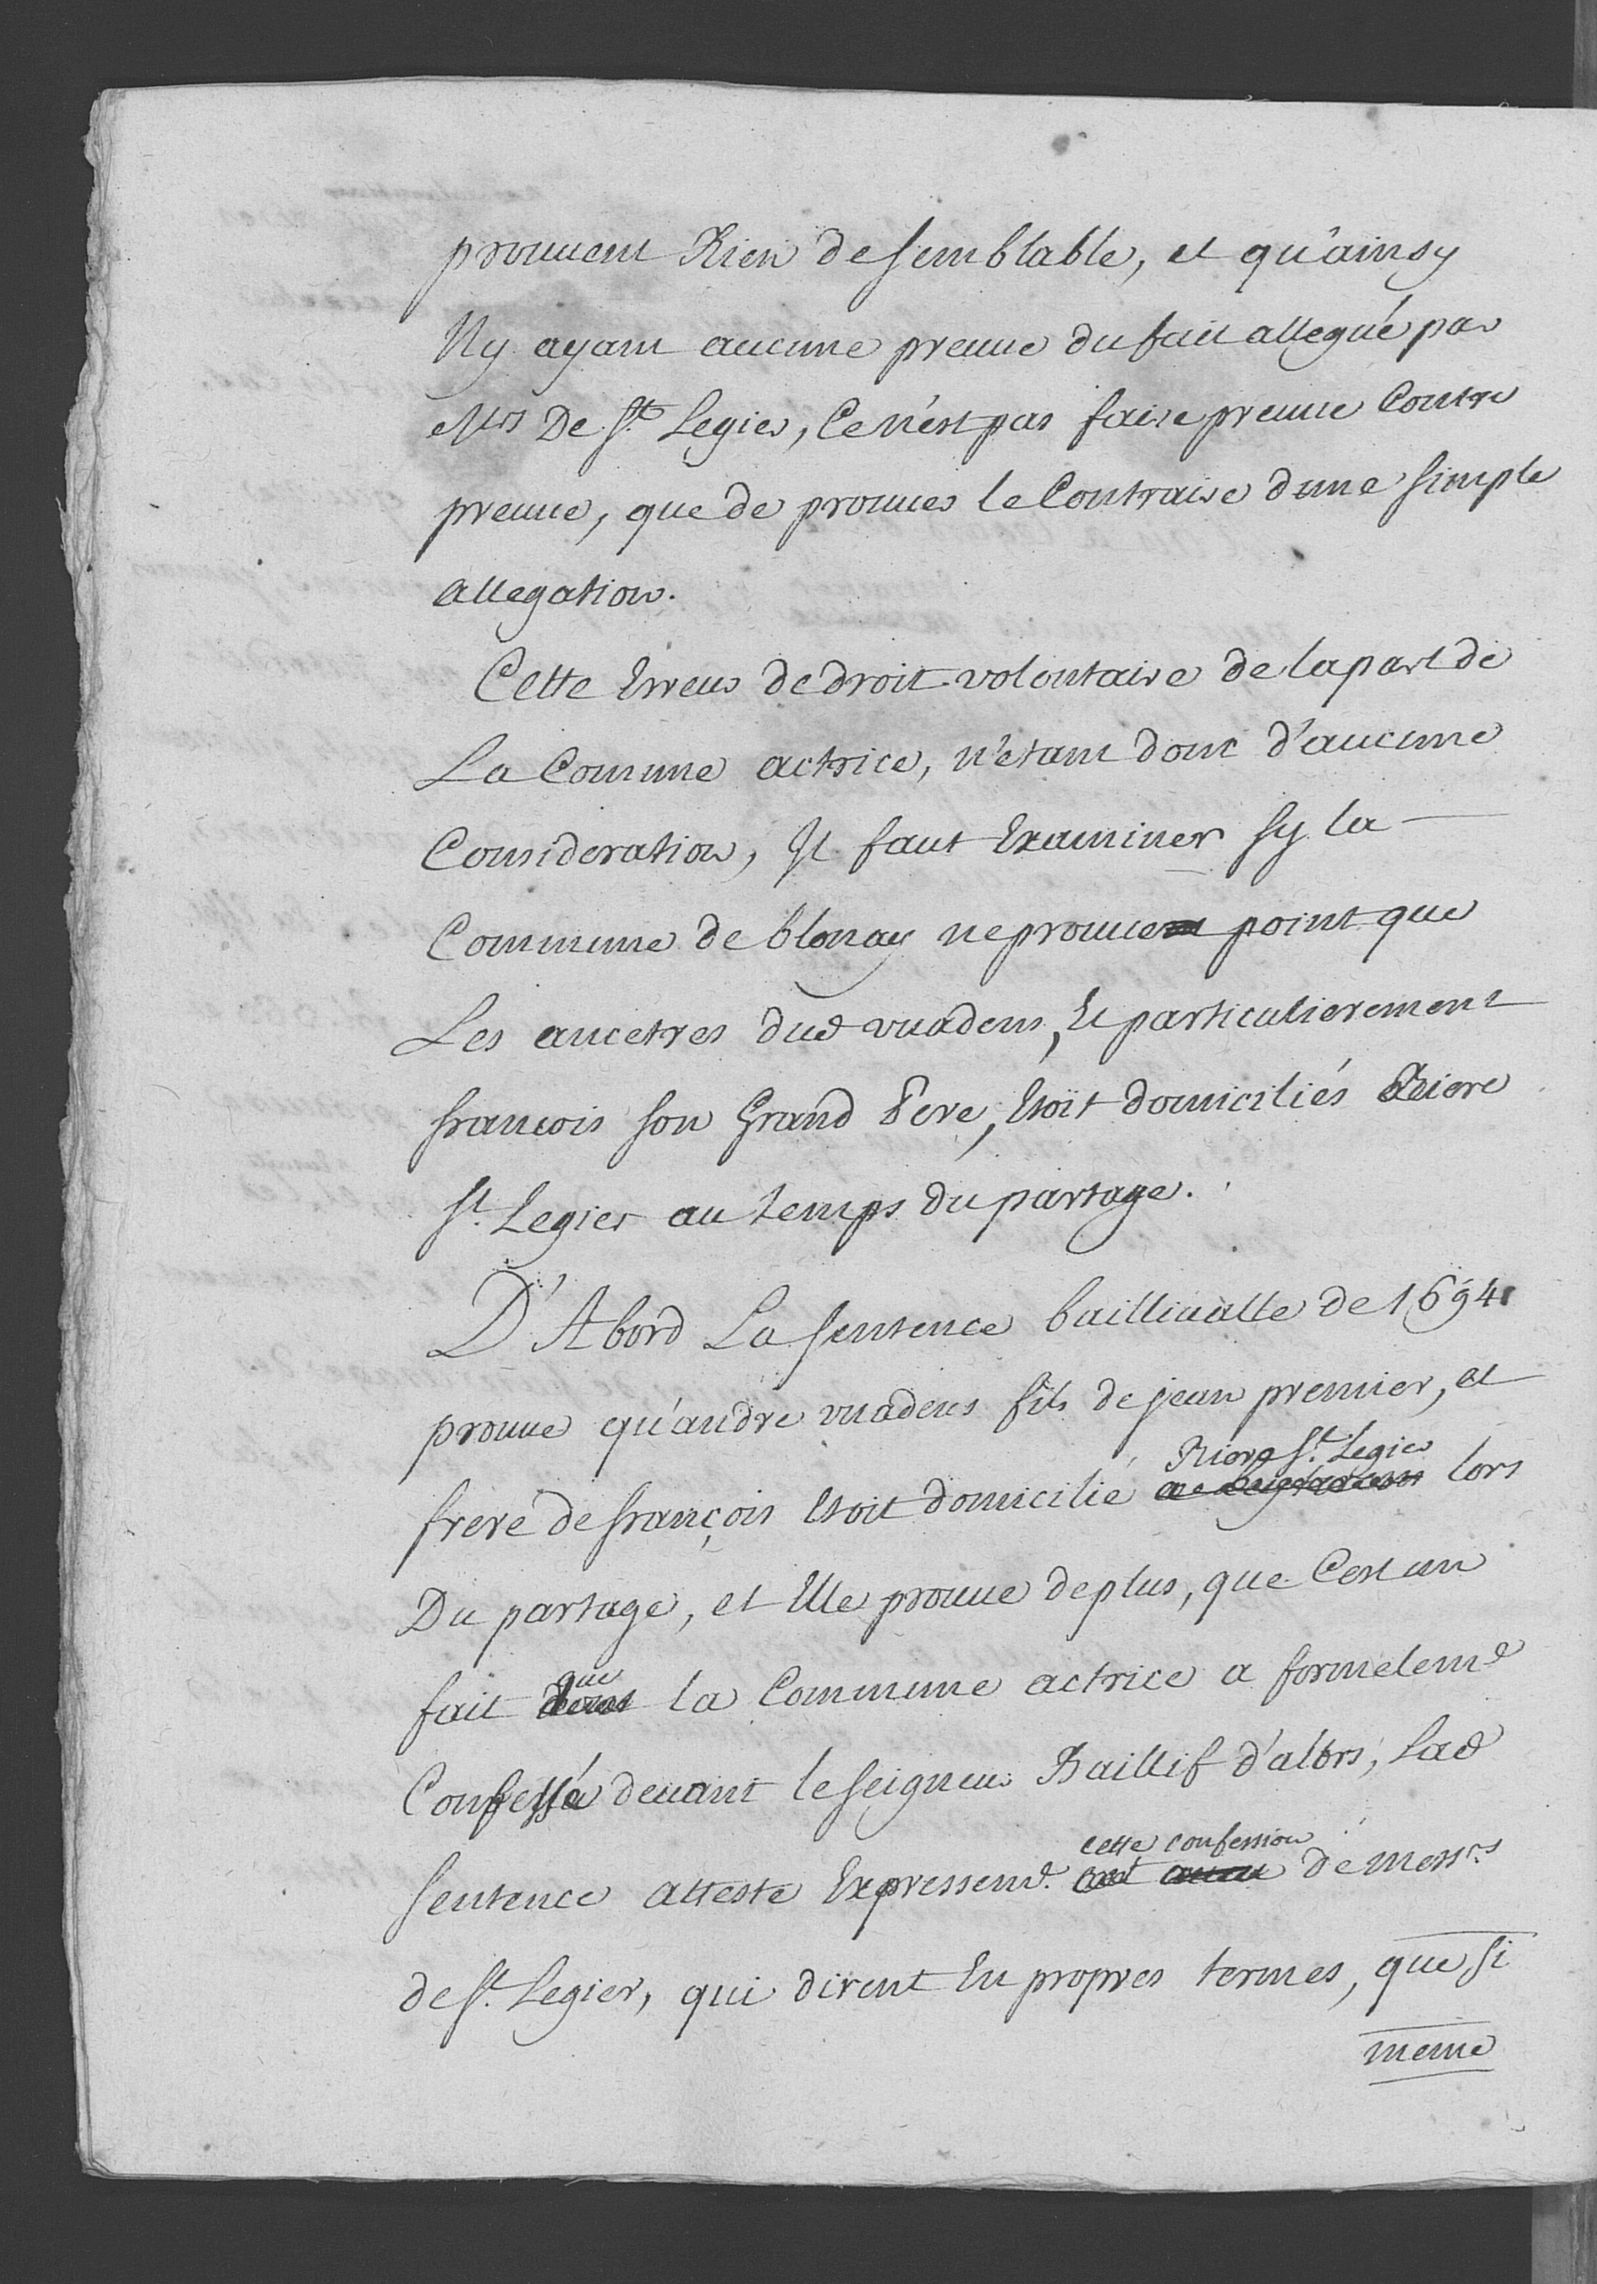 prouvent Rien de semblable, et qu'ainsy
N'y ayant aucune preuve du fait allegué par
Mrs De St. Legier, Ce n'est pas faire preuve Contre
preuve, que de prouver le Contraire d'une simple
allegation.
Cette Erreur de droit volontaire de la part de
La Comune actrice, n'étant donc d'aucune
Consideration, Il faut Examiner sy la
Commune de blonay ne prouve point que
Les ancetres dud vuadens, Et particulierement
francois son Grand Pere, Etoit domiciliés Riere
St. Legier au temps du partage.
D'Abord La sentence baillivalle de 1694
prouve qu'andre vuadens fils de jean premier, et
Riere St. Legier
frere de françois Etoit domicilié lors
Du partage, et Elle prouve de plus, que C'est un
que
fait dont la Commune actrice a formelemt
Confessé devant le seigneur Baillif d'alors, Lad
cette confession
sentence atteste Expressemt. de messrs
de St. Legier, qui dirent En propres termes, que si
meme